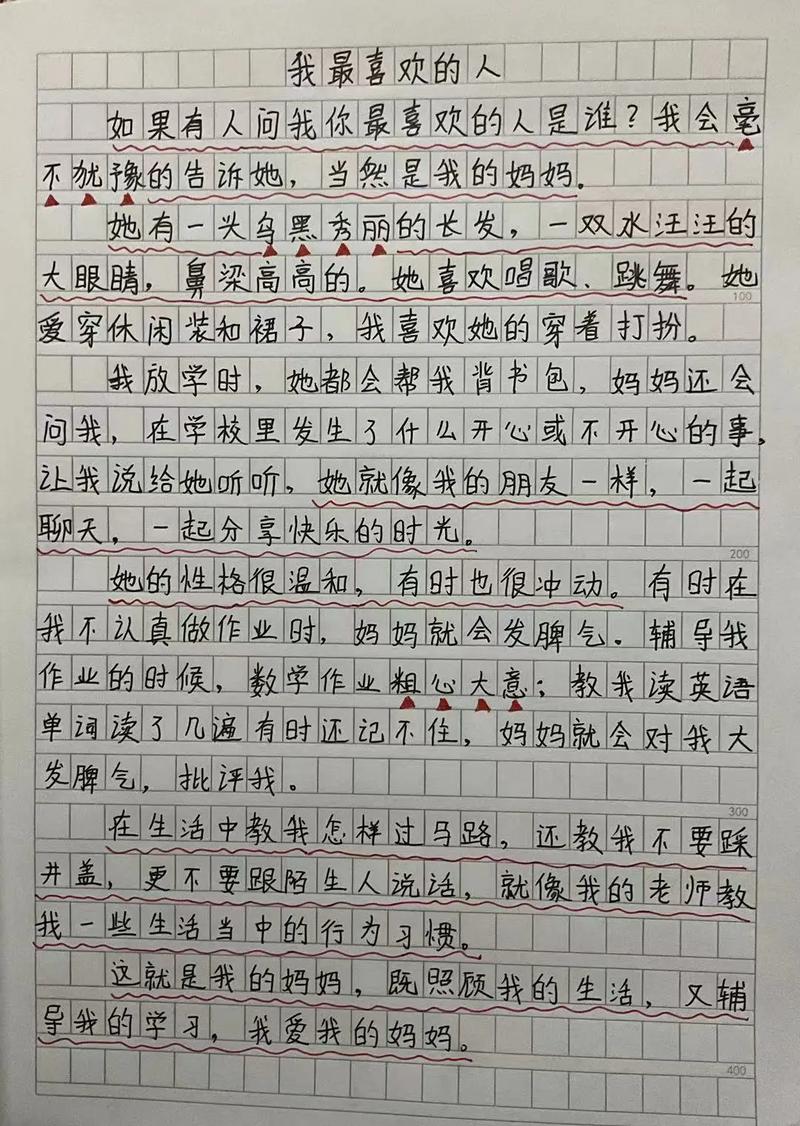 我最喜欢的人
如果有人问我你最喜欢的人是谁？我会毫
不犹豫的告诉她，当然是我的妈妈。
她有一头乌黑秀丽的长发，一双水汪汪的
大眼睛，鼻梁高高的。她喜欢唱歌、跳舞。她
100
爱穿休闲装和裙子，我喜欢她的穿着打扮。
我放学时，她都会帮我背书包，妈妈还会
问我，在学校里发生了什么开心或不开心的事，
让我说给她听听，她就像我的朋友一样，一起
聊天，一起分享快乐的时光。
200
她的性格很温和，有时也很冲动。有时在
我不认真做作业时，妈妈就会发脾气．辅导我
作业的时候，数学作业粗心大意；教我读英语
单词读了几遍有时还记不住，妈妈就会对我大
发脾气，批评我。
300
在生活中教我怎样过马路，还教我不要踩
井盖，更不要跟陌生人说话，就像我的老师教
我一些生活当中的行为习惯。
这就是我的妈妈，既照顾我的生活，又辅
导我的学习，我爱我的妈妈。
400